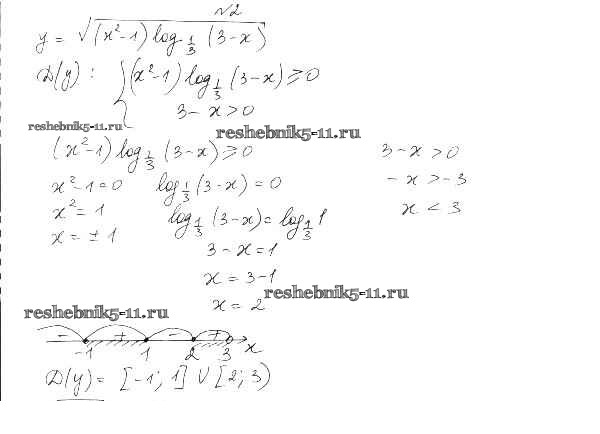 №2
y = √((x²-1) log_{1/3} (3-x))
D(y): { (x²-1) log_{1/3} (3-x) ≥ 0
3 - x > 0
reshebnik5-11.ru
reshebnik5-11.ru
(x²-1) log_{1/3} (3-x) ≥ 0
3 - x > 0
x² - 1 = 0
log_{1/3} (3-x) = 0
- x > -3
x² = 1
log_{1/3} (3-x) = log_{1/3} 1
x < 3
x = ± 1
3 - x = 1
x = 3-1
x = 2
reshebnik5-11.ru
reshebnik5-11.ru
- + - +
-1 1 2 3 x
D(y) = [-1; 1] ∪ [2; 3)